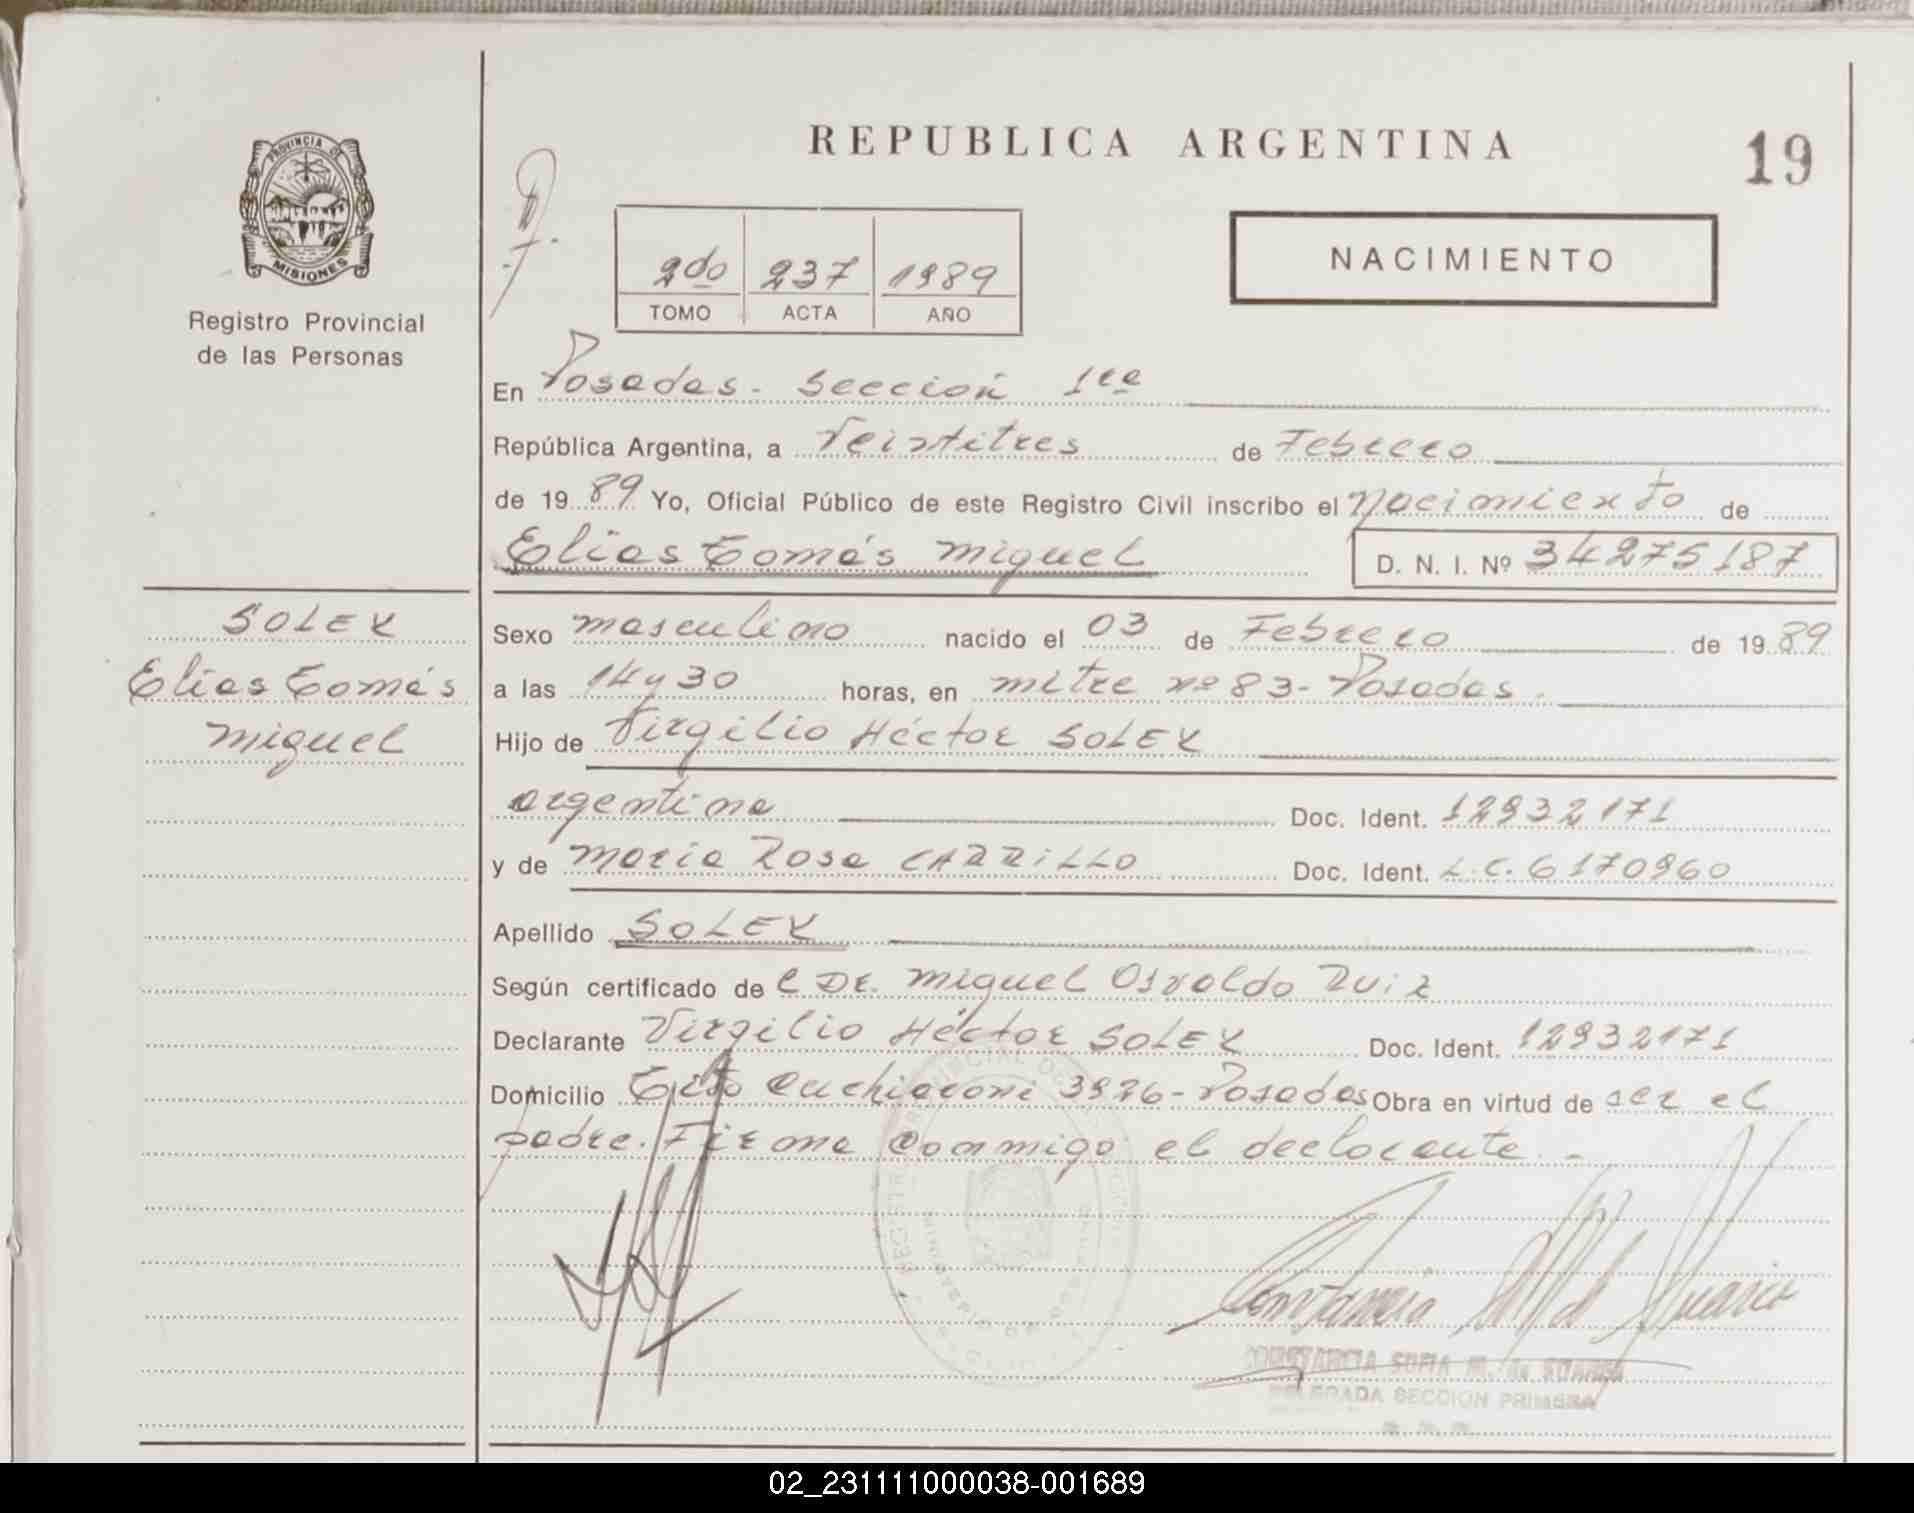 PROVINCIA DE
MISIONES
Registro Provincial
de las Personas
REPUBLICA ARGENTINA
19
2do 237 1989
TOMO ACTA AÑO
NACIMIENTO
En Posadas - Sección 1ra
República Argentina, a Veintitres de Febrero
de 1989 Yo, Oficial Público de este Registro Civil inscribo el Nacimiento de
Elias Tomás Miguel D. N. I. Nº 34275187
SOLEY
Elias Tomás
Miguel
Sexo masculino nacido el 03 de Febrero de 1989
a las 14 y 30 horas, en mitre nº 83 - Posadas.
Hijo de Virgilio Héctor SOLEY
argentina Doc. Ident. 12932171
y de María Rosa CARRILLO Doc. Ident. L.C. 6170960
Apellido SOLEY
Según certificado de l DR. Miguel Osvaldo Ruiz
Declarante Virgilio Héctor SOLEY Doc. Ident. 12932171
Domicilio Tito Cuchiaroni 3926 - Posadas Obra en virtud de ser el
padre. Firma conmigo el declarante. -
CONSTANCIA SOFIA M. de SUAREZ
DELEGADA SECCION PRIMERA
02_231111000038-001689